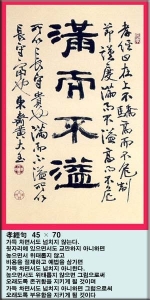 孝經曰在上不驕高而不危制
節謹度滿而不溢高而不危
滿而不溢
所以長守貴也滿而不溢所以
長守富也
孝經句 45 × 70
가득 차면서도 넘치지 않는다.
윗자리에 있으면서도 교만하지 아니하면
높으면서 위태롭지 않고
비용을 절제하고 예법을 삼가면
가득 차면서도 넘치지 아니하는 것이다.
높으면서도 위태롭지 않으면 그럼으로써
오래도록 존귀함을 지키게 될 것이며
가득 차면서도 넘치지 아니하면 그럼으로써
오래도록 부유함을 지키게 될 것이다.